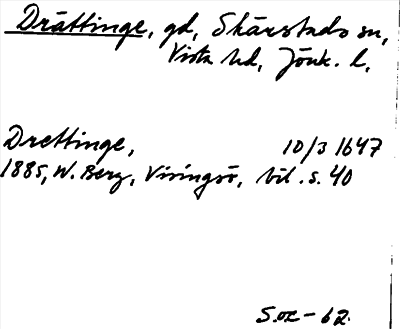 Drättinge, gd, Skärstads sn,
Vista hd, Jönk. l,
Drettinge, 10/3 1647
1885, W. Berg, Visingsö, bil. s. 40
S.oz - 62.